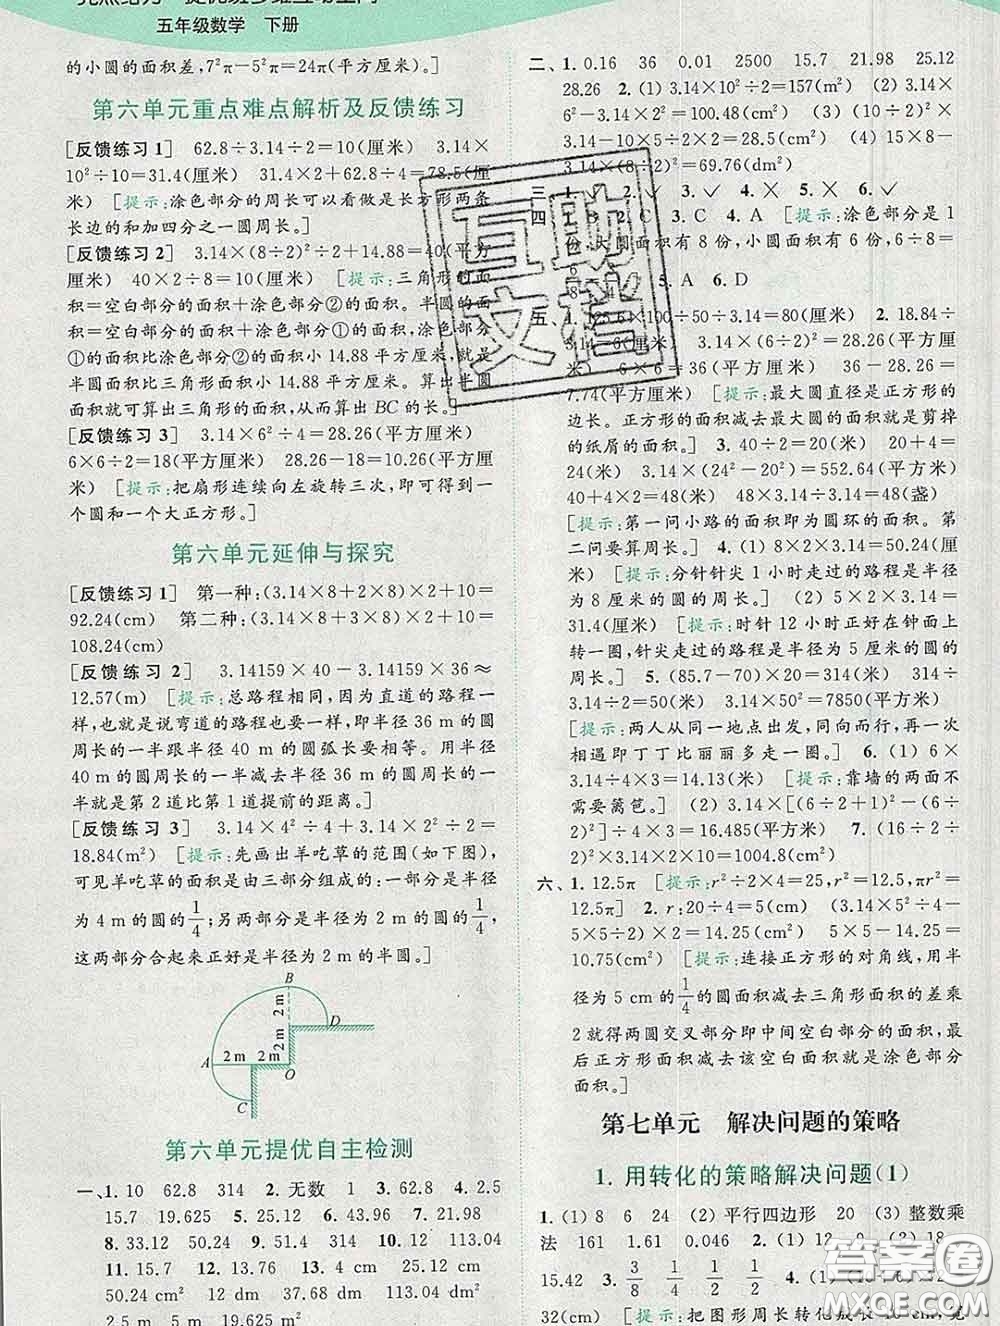 五年级数学 下册
的小圆的面积差,7²π－5²π＝24π(平方厘米)。]
第六单元重点难点解析及反馈练习
[反馈练习 1] 62.8÷3.14÷2＝10(厘米) 3.14×
10²÷10＝31.4(厘米) 31.4×2＋62.8÷4＝78.5(厘
米) [提示:涂色部分的周长可以看做是长方形两条
长边的和加四分之一圆周长。]
[反馈练习 2] 3.14×(8÷2)²÷2＋14.88＝40(平方
厘米) 40×2÷8＝10(厘米) [提示:三角形的面
积＝空白部分的面积＋涂色部分②的面积。半圆的面
积＝空白部分的面积＋涂色部分①的面积,涂色部分
①的面积比涂色部分②的面积小 14.88 平方厘米,就是
半圆面积比三角形面积小 14.88 平方厘米。算出半圆
面积就可算出三角形的面积,从而算出 BC 的长。]
[反馈练习 3] 3.14×6²÷4＝28.26(平方厘米)
6×6÷2＝18(平方厘米) 28.26－18＝10.26(平方厘
米) [提示:把扇形连续向左旋转三次,即可得到一个
圆和一个大正方形。]
第六单元延伸与探究
[反馈练习 1] 第一种:(3.14×8＋2×8)×2＋10＝
92.24(cm) 第二种:(3.14×8＋3×8)×2＋10＝
108.24(cm)
[反馈练习 2] 3.14159×40－3.14159×36≈
12.57(m) [提示:总路程相同,因为直道的路程一
样,也就是说弯道的路程也要一样,即半径 36 m 的圆
周长的一半跟半径 40 m 的圆弧长要相等。用半径
40 m 的圆周长的一半减去半径 36 m 的圆周长的一
半,就是第 2 道比第 1 道提前的距离。]
[反馈练习 3] 3.14×4²÷4＋3.14×2²÷2＝
18.84(m²) [提示:先画出羊吃草的范围(如下图),
可见羊吃草的面积是由三部分组成的:一部分是半径
为 4 m 的圆的1/4;另两部分是半径为 2 m 的圆的1/4,
这两部分合起来正好是半径为 2 m 的半圆。]
B
2 m
D
2 m
A 2 m 2 m
O
C
第六单元提优自主检测
一、1. 10 62.8 314 2. 无数 1 3. 62.8 4. 2.5
15.7 19.625 5. 25.12 6. 43.96 7. 21.98
8. 33.12 50.24 9. 50.24 10. 12 113.04
11. 15.7 dm 19.625 dm² 25.12 cm
50.24 cm² 12 dm 37.68 dm 113.04 dm²
二、1. 0.16 36 0.01 2500 15.7 21.98 25.12
28.26 2. (1) 3.14×10²÷2＝157(m²) (2) 3.14×
3.14×(8÷2)²＝69.76(dm²)
3. ✓ 4. ✗ 5. ✗ 6. ✓
3. C 4. A [提示:涂色部分是 1
份,大圆面积有 8 份,小圆面积有 6 份,6÷8＝
5. A 6. D
7.74(平方厘米) [提示:最大圆的直径是正方形的
边长。正方形的面积减去最大圆的面积就是剪掉
的纸屑的面积。] 3. 40÷2＝20(米) 20＋4＝
24(米) 3.14×(24²－20²)＝552.64(平方米)
40＋4×2＝48(米) 48×3.14÷3.14＝48(盏)
[提示:第一问小路的面积即为圆环的面积。第
二问要算周长。] 4. (1) 8×2×3.14＝50.24(厘
米) [提示:分针针尖 1 小时走过的路程是半径
为 8 厘米的圆的周长。] (2) 5×2×3.14＝
31.4(厘米) [提示:时针 12 小时正好在钟面上
转一圈,针尖走过的路程为半径为 5 厘米的圆的
周长。] 5. (85.7－70)×20＝314(米) 314÷
3.14÷2＝50(米) 3.14×50²＝7850(平方米)
[提示:两人从同一地点出发,同向而行,再一次
相遇即丁丁比丽丽多走一圈。] 6. (1) 6×
3.14÷4×3＝14.13(米) [提示:靠墙的两面不
需要篱笆。] (2) 3.14×[(6÷2＋1)²－(6÷
2)²]÷4×3＝16.485(平方米) 7. (16÷2÷
2)²×3.14×2×10＝1004.8(cm²)
六、1. 12.5π [提示:r²÷2×4＝25,r²＝12.5,πr²＝
12.5π] 2. r:20÷4＝5(cm) (3.14×5²÷4－
5×5÷2)×2＝14.25(cm²) 5×5－14.25＝
10.75(cm²) [提示:连接正方形的对角线,用半
径为 5 cm 的1/4圆面积减去三角形面积的差乘
2就得两圆交叉部分即中间空白部分的面积,最
后正方形面积减去该空白面积就是涂色部分
面积。]
第七单元 解决问题的策略
1. 用转化的策略解决问题(1)
1. (1) 8 6 24 (2) 平行四边形 20 (3) 整数乘
法 161 1.61 0.046 2. (1) 12 (2) 18
15.42 3. 3/8 1/4 1/2 1/2 4.
32(cm) [提示:把图形周长转化成长
互助文档
答案圈
MXQE.COM